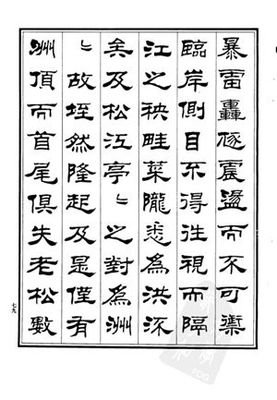 暴雷轟豗震盪而不可禦
臨岸側目不得注視而隔
江之秧畦菜隴悉為洪流
矣及松江亭〻之對為洲
〻故垤然隆起及是僅有
洲頂而首尾俱失老松數
七九